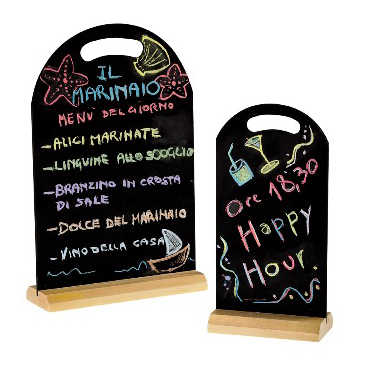 IL
MARINAIO
MENU' DEL GIORNO
- ALICI MARINATE
- LINGUINE ALLO SCOGLIO
- BRANZINO IN CROSTA
DI SALE
- DOLCE DEL MARINAIO
- VINO DELLA CASA
Ore 18,30
HAPPY
HOUR.